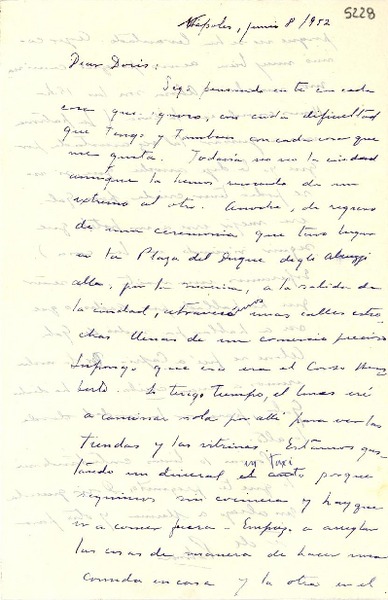 5228
Nápoles, junio 8/1952
Dear Doris:
Sigo pensando en ti con cada
cosa que ignoro, con cada dificultad
que tengo y también con cada cosa que
me gusta. Todavía no veo la ciudad
aunque la hemos cruzado de un
extremo al otro. Anoche, de regreso
de una ceremonia que tuvo lugar
en la Plaza del Duque degli Abruzzi
allá, por la marina, a la salida de
la ciudad, atravesamos unas calles estre
chas llenas de un comercio precioso
Supongo que ese era el Corso Hum
berto. Si tengo tiempo, el lunes iré
a caminar sola por allí para ver las
tiendas y las vitrinas. Estamos gas-
tando un dineral en taxi porque
seguimos sin cocinera y hay que
ir a comer fuera. Empecé a arreglar
las cosas de manera de hacer una
comida en casa y la otra en el